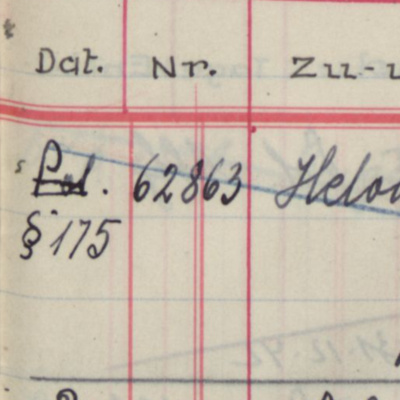 Dat. Nr. Zu-
Pol. 62863 Helo
§ 175